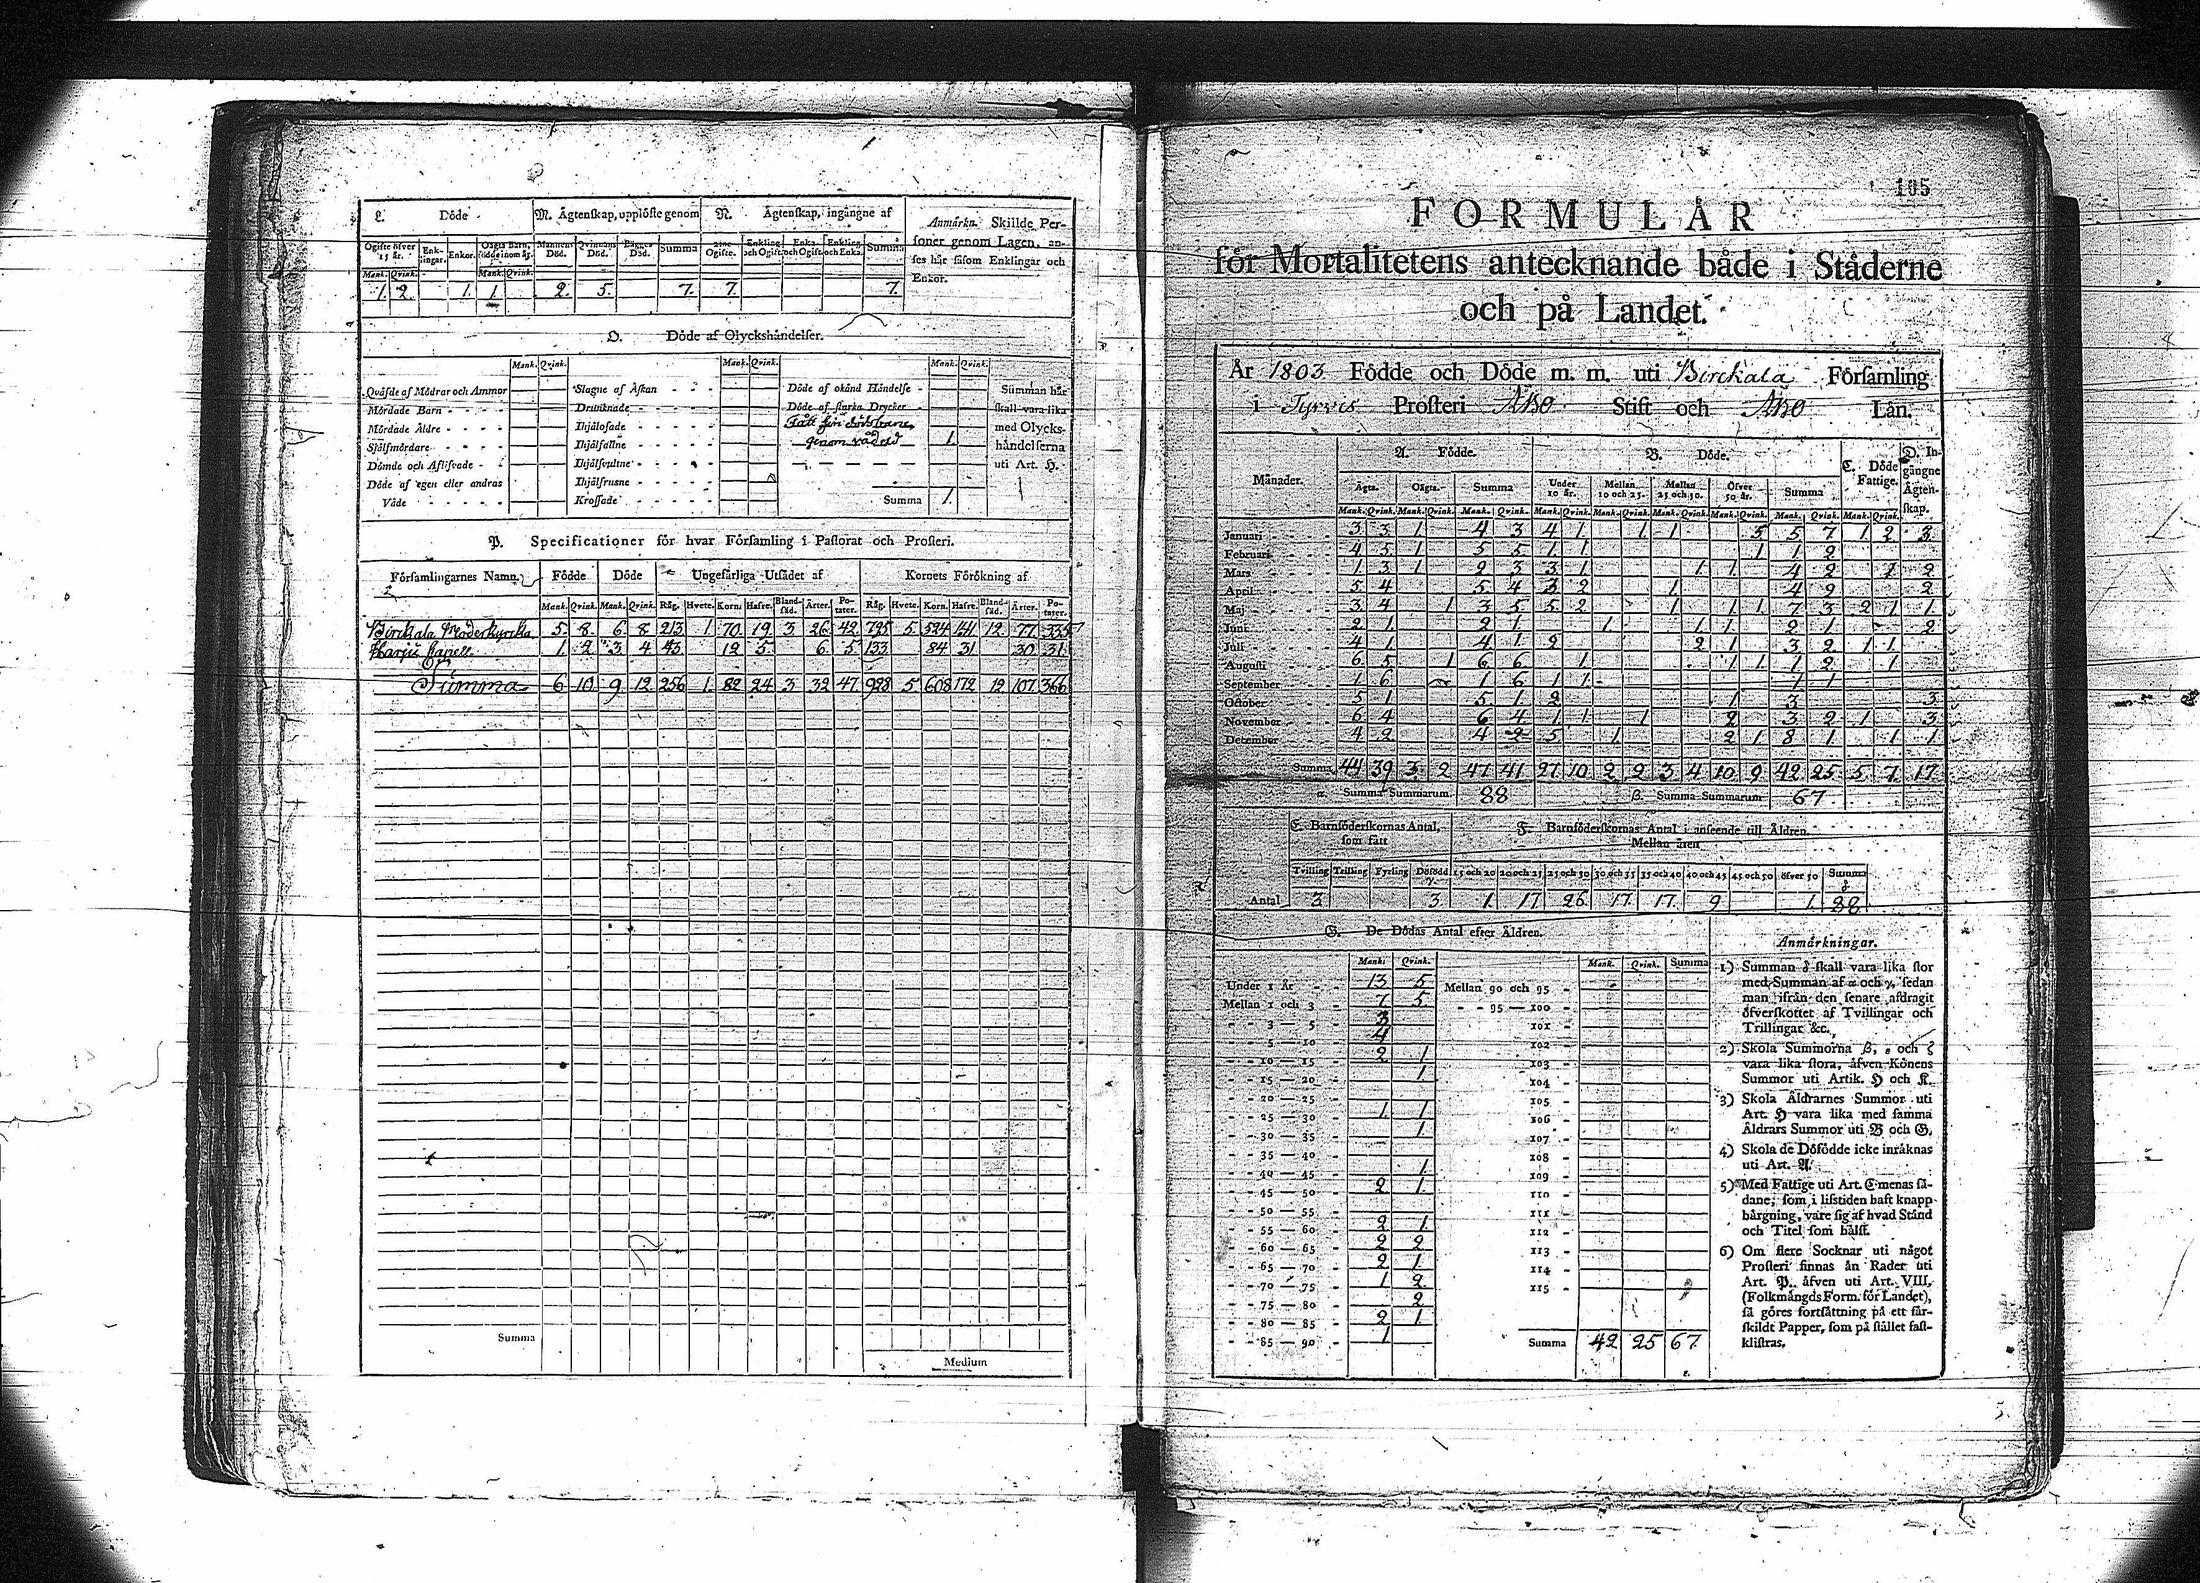 L. Döde
M. Ägtenskap, upplöste genom
N. Ägtenskap, ingångne af
Anmärkn. Skillde Per-
soner genom Lagen, an-
ses här såsom Enklingar och
Enkor.
Ogifte öfver 15 år. Enk-lingar. Enkor. Oägta Barn, födde inom år. Mannens Död. Qvinnans Död. Bägges Död. Summa Ogifte. Enkling och Ogift. Enka och Ogift. Enkling och Enka. Summa
Mank. Qvink. Mank. Qvink.
1. 2. 1. 1. 2. 5. 7. 7. 7.
O. Döde af Olyckshändelser.
Mank. Qvink. Mank. Qvink. Mank. Qvink.
Qväfde af Mödrar och Ammor
Mördade Barn
Mördade Äldre
Självmördare
Dömde och Aflifvade
Döde af egen eller andras
Våde
Slagne af Åskan
Drunknade
Ihjälosade
Ihjälfallne
Ihjälsvultne
Ihjälfrusne
Krossade
Döde af okänd Händelse
Döde af starka Drycker
genom våda 1.
Summa 1.
Summan här
skall vara lika
med Olycks-
händelserna
uti Art. H.
P. Specificationer för hvar Församling i Pastorat och Prosteri.
Församlingarnes Namn. Födde Döde Ungefärliga Utsädet af Kornets Förökning af
Mank. Qvink. Mank. Qvink. Råg. Hvete. Korn. Hafre. Bland-säd. Ärter. Po-tater. Råg. Hvete. Korn. Hafre. Bland-säd. Ärter. Po-tater.
Birckala Moderkyrcka 5. 8. 6 8 213 1 70 19 3 26 42 795 5 524 141 12. 77. 335
Harju Capell 1. 2 3 4 43 12 5. 6. 5 133 84 31 30 31
Summa 6 10 9 12 256 1. 82 24 3 32 47 928 5 608 172 12 107 366
Summa
Medium
105
FORMULÄR
för Mortalitetens antecknande både i Städerne
och på Landet.
År 1803 Födde och Döde m. m. uti Birckala Församling
i Tyrvis Prosteri Åbo Stift och Åbo Län.
Månader. A. Födde. B. Döde. C. Döde Fattige. D. In-gångne Ägten-skap.
Ägta. Oägta. Summa Under 10 år. Mellan 10 och 25. Mellan 25 och 50. Öfver 50 år. Summa
Mank. Qvink. Mank. Qvink. Mank. Qvink. Mank. Qvink. Mank. Qvink. Mank. Qvink. Mank. Qvink. Mank. Qvink. Mank. Qvink.
Januari 3 3 1 4 3 4 1. 1. 1 5 5 7 1 2 3
Februari 4 5 1 5 5 1 1 1 1 2
Mars 1 3 1 2 3 3 1 1 1. 4 2 2 2
April 5 4 5 4 3 2 1. 4 2 2
Maj 3 4 1 3 5 5 2 1 1 1 7 3 2 1 1
Junii 2 1 2 1 1. 1 1 2 1 2
Julii 4 1 4 1 2 2 1 3 2 1 1
Augusti 6 5 1 6 6 1 1 1 1 2 1
September 1 6 1 6 1 1 1 1
October 5 1 5 1 2 1 3 3
November 6 4 6 4 1 1 1 2 3 2 1 3
December 4 2 4 2 5 1 2 1 8 1 1 1
Summa 44 39 3 2 47 41 27 10 2 2 3 4 10 9 42 25 5 7 17
α. Summa Summarum 88 β. Summa Summarum 67
E. Barnföderskornas Antal,
som fått
F. Barnföderskornas Antal i anseende till Åldren.
Mellan åren
Tvilling Trilling Fyrling Döfödd γ 15 och 20 20 och 25 25 och 30 30 och 35 35 och 40 40 och 45 45 och 50 öfver 50 Summa δ
Antal 3 3 1. 17 26 17 17. 9 1. 88
G. De Dödas Antal efter Åldren.
Mank. Qvink. Mank. Qvink. Summa
Under 1 år 13 5
Mellan 1 och 3 7 5
3 — 5 3
5 — 10 4
10 — 15 2 1
15 — 20 1
20 — 25
25 — 30 1. 1
30 — 35 1.
35 — 40
40 — 45 1.
45 — 50 2 1.
50 — 55
55 — 60 2 1.
60 — 65 2 2
65 — 70 2 1
70 — 75 1 2
75 — 80 2
80 — 85 2 1
85 — 90 1
Mellan 90 och 95
95 — 100
101
102
103
104
105
106
107
108
109
110
111
112
113
114
115
Summa 42 25 67.
Anmärkningar.
1) Summan δ skall vara lika stor
med Summan af α och γ, sedan
man ifrån den senare afdragit
öfverskottet af Tvillingar och
Trillingar &c.
2) Skola Summorna β, ε och ζ
vara lika stora, äfven Könens
Summor uti Artik. H och K.
3) Skola Åldrarnes Summor uti
Art. H vara lika med samma
Åldrars Summor uti B och G.
4) Skola de Döfödde icke inräknas
uti Art. A.
5) Med Fattige uti Art. C menas så-
dane, som i lifstiden haft knapp
bärgning, vare sig af hvad Stånd
och Titel som hälst.
6) Om flere Socknar uti något
Prosteri finnas än Rader uti
Art. P. äfven uti Art. VIII,
(Folkmängds Form. för Landet),
så göres fortsättning på ett sär-
skildt Papper, som på stället fast-
klistras.